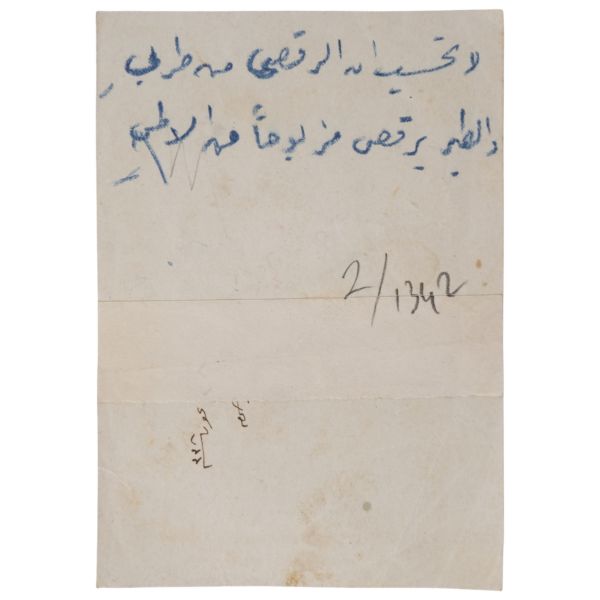 لا تحسب ان الرقص من طربي
والطير يرقص مزبوحاً من الالم
2/1342